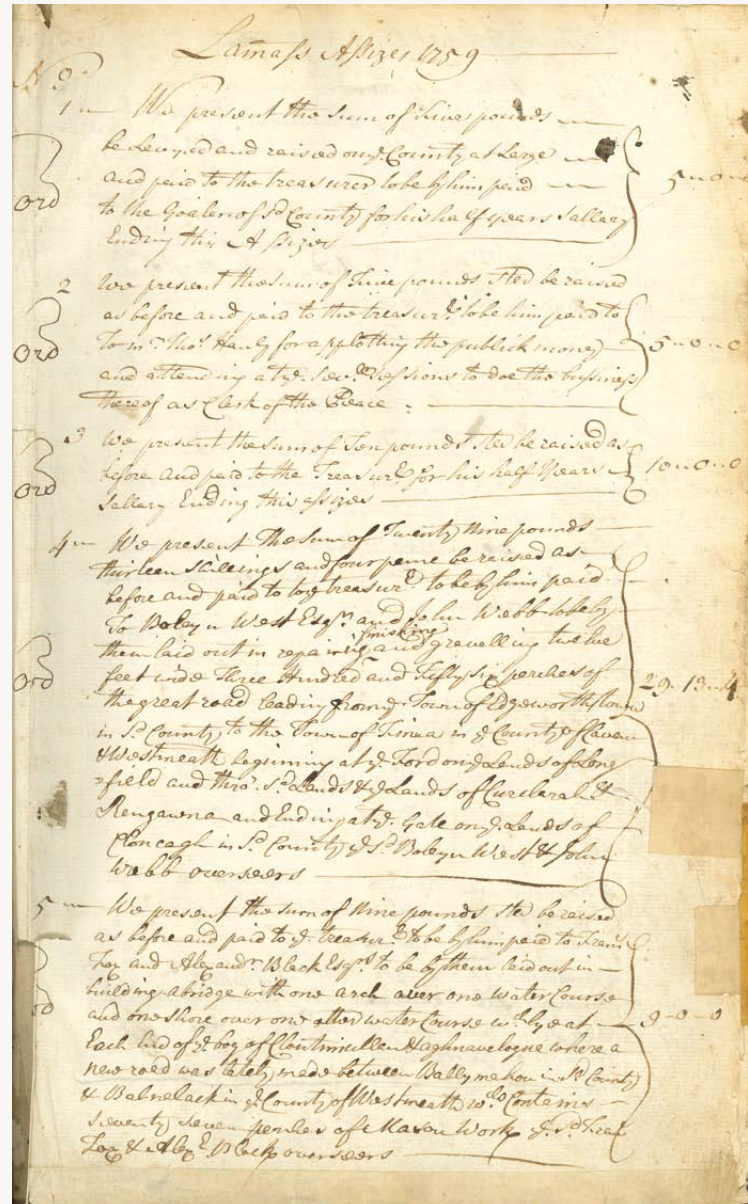 Lamass Assizes 1759
No.
1 We present the sum of five pounds
be Levyed and raised on ye. County at Large
and paid to the treasurer to be by him paid
5-0-0
Ord
to the Goaler of sd County for his half years Sallery
Ending this Assizes
2 We present the sum of five pounds ster be raised
as before and paid to the treasurr. to be him paid to
Ord
To mr. Thos. Hanly for applotting the publick money
5-0-0
and attending at ye. sevll. Sessions to doe the bussiness
thereof as Clerk of the Peace
3 We present the sum of Ten pounds ster be raised as
before and paid to the Treasurr. for his half years
10-0-0
Ord
Sallery Ending this assizes
4 We present The sum of Twenty Nine pounds
thirteen shillings and four pence be raised as
before and paid to the treasurr. to be by him paid
To Boleyn West Esqr. and John Webb to be by
them laid out in repairing finishing and gravelling twelve
Ord
feet wide Three Hundred and Fifty six perches of
29-13-4
the great road leading from ye. Town of Edgeworthstown
in sd. County to the Town of Finea in ye County of Cavan
& Westmeath beginning at ye. Ford on ye Lands of Long
=field and thro'. sd. Lands & ye Lands of &
Rengawna and Ending at ye. Gate on ye. Lands of
Cloncagh in sd. County ye sd. Boleyn West & John
Webb overseers
5 We present the sum of Nine pounds ster be raised
as before and paid to ye. treasurr. to be by him paid to Frans
Fox and Alexandr. Black Esqrs. to be by them laid out in
building a bridge with one arch over one Water Course
and one shore over one other water Course wch. lye at
9-0-0
Each End of ye bog of where a
new road was lately made between Ballymahon in sd County
& Balnelack in ye County of Westmeath wch. Contains
seventy seven perches of Mason Work ye. sd. Fran
Fox & Alexr. Black overseers